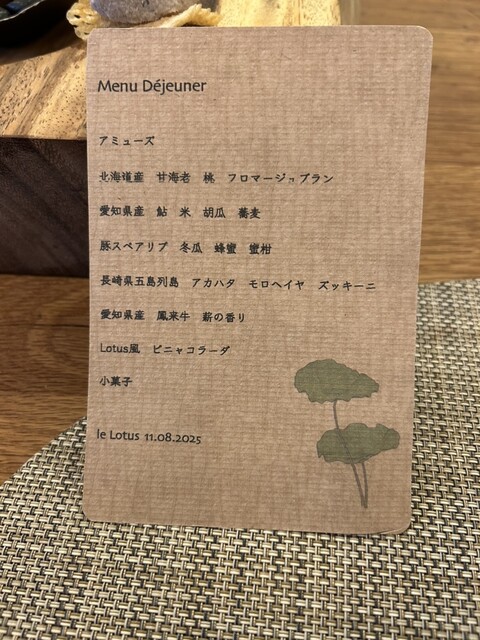 Menu Déjeuner
アミューズ
北海道産　甘海老　桃　フロマージュブラン
愛知県産　鮎　米　胡瓜　蕎麦
豚スペアリブ　冬瓜　蜂蜜　蜜柑
長崎県五島列島　アカハタ　モロヘイヤ　ズッキーニ
愛知県産　鳳来牛　薪の香り
Lotus風　ピニャコラーダ
小菓子
le Lotus 11.08.2025